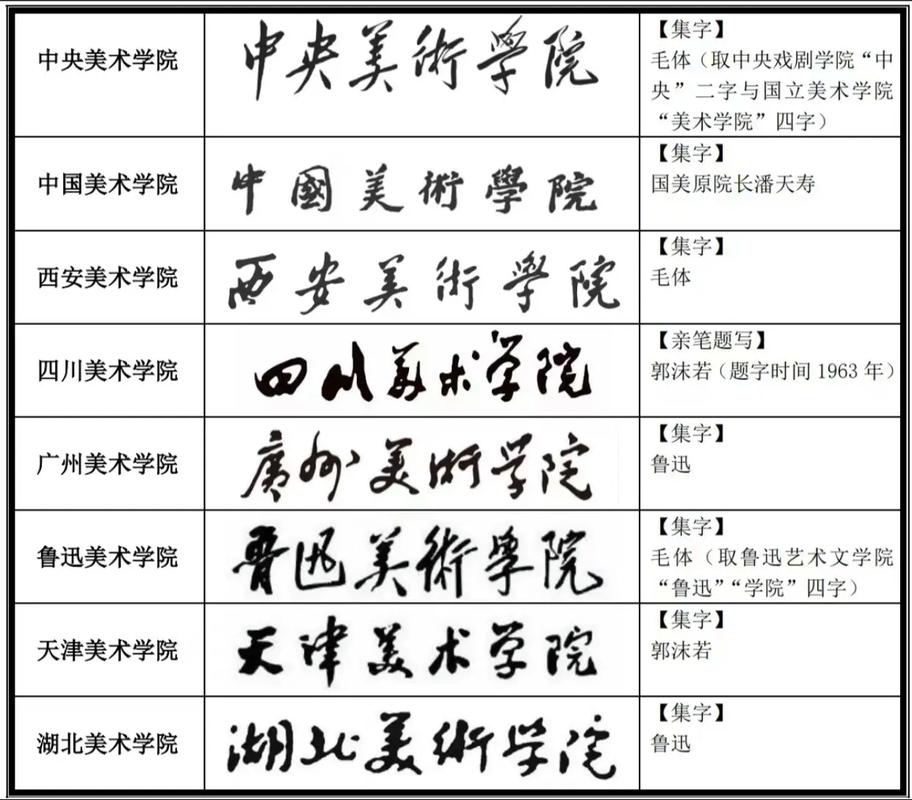 中央美术学院
中央美術學院
【集字】
毛体（取中央戏剧学院“中
央”二字与国立美术学院
“美术学院”四字）
中国美术学院
中國美術學院
【集字】
国美原院长潘天寿
西安美术学院
西安美術學院
【集字】
毛体
四川美术学院
四川美术学院
【亲笔题写】
郭沫若（题字时间1963年）
广州美术学院
廣州美術学院
【集字】
鲁迅
鲁迅美术学院
魯迅美術學院
【集字】
毛体（取鲁迅艺术文学院
“鲁迅”“学院”四字）
天津美术学院
天津美术学院
【集字】
郭沫若
湖北美术学院
湖北美術学院
【集字】
鲁迅